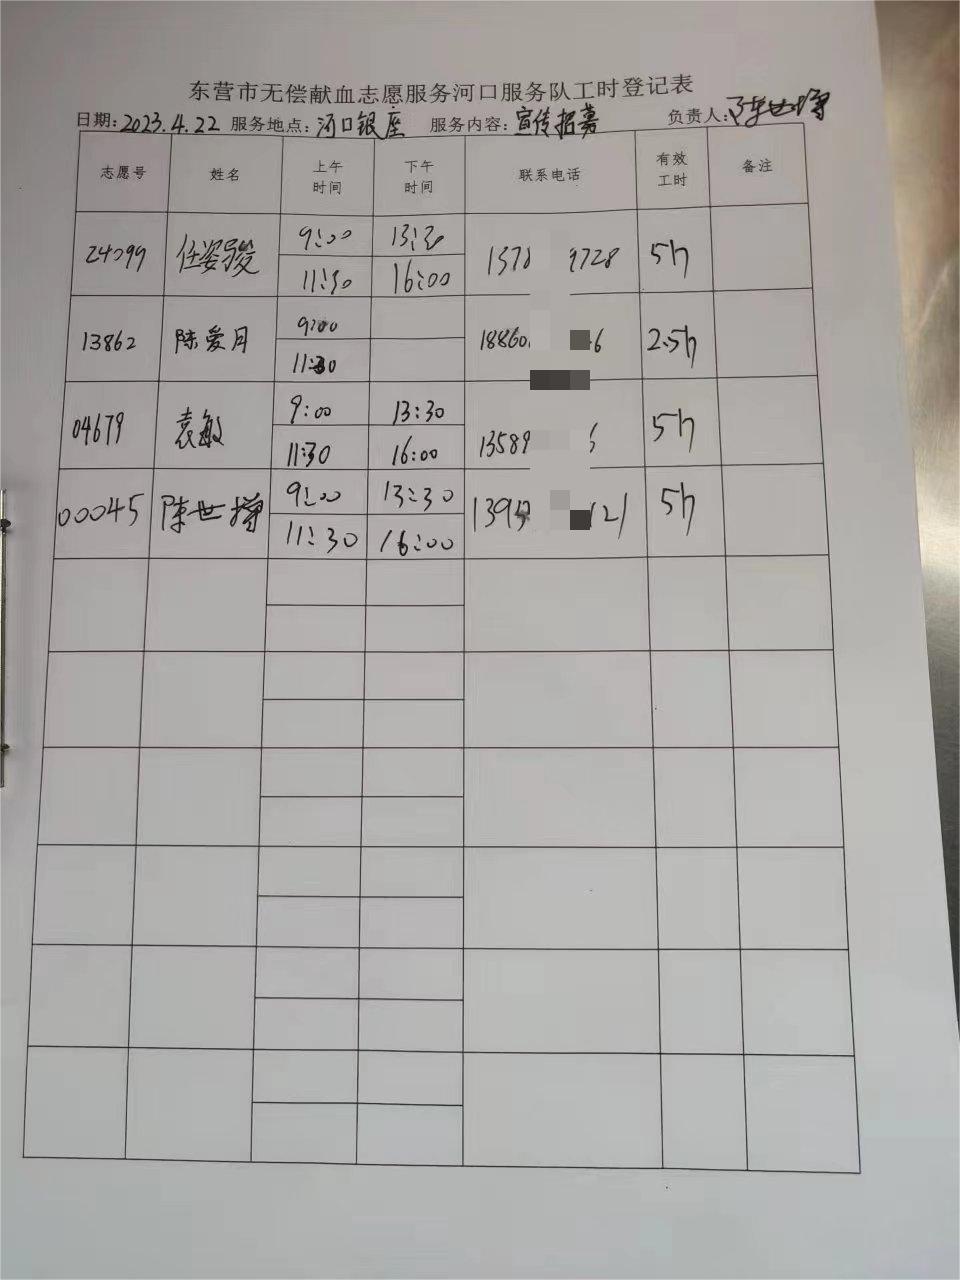 东营市无偿献血志愿服务河口服务队工时登记表
日期: 2023.4.22 服务地点: 河口银座 服务内容: 宣传招募 负责人: 陈世增
志愿号 姓名 上午时间 下午时间 联系电话 有效工时 备注
24099 任姿 9:00 13:30 1378 9728 5h
11:30 16:00
13862 陈爱月 9:00 18860 6 2.5h
11:30
04679 袁敏 9:00 13:30 13589 6 5h
11:30 16:00
00045 陈世增 9:00 13:30 139 121 5h
11:30 16:00